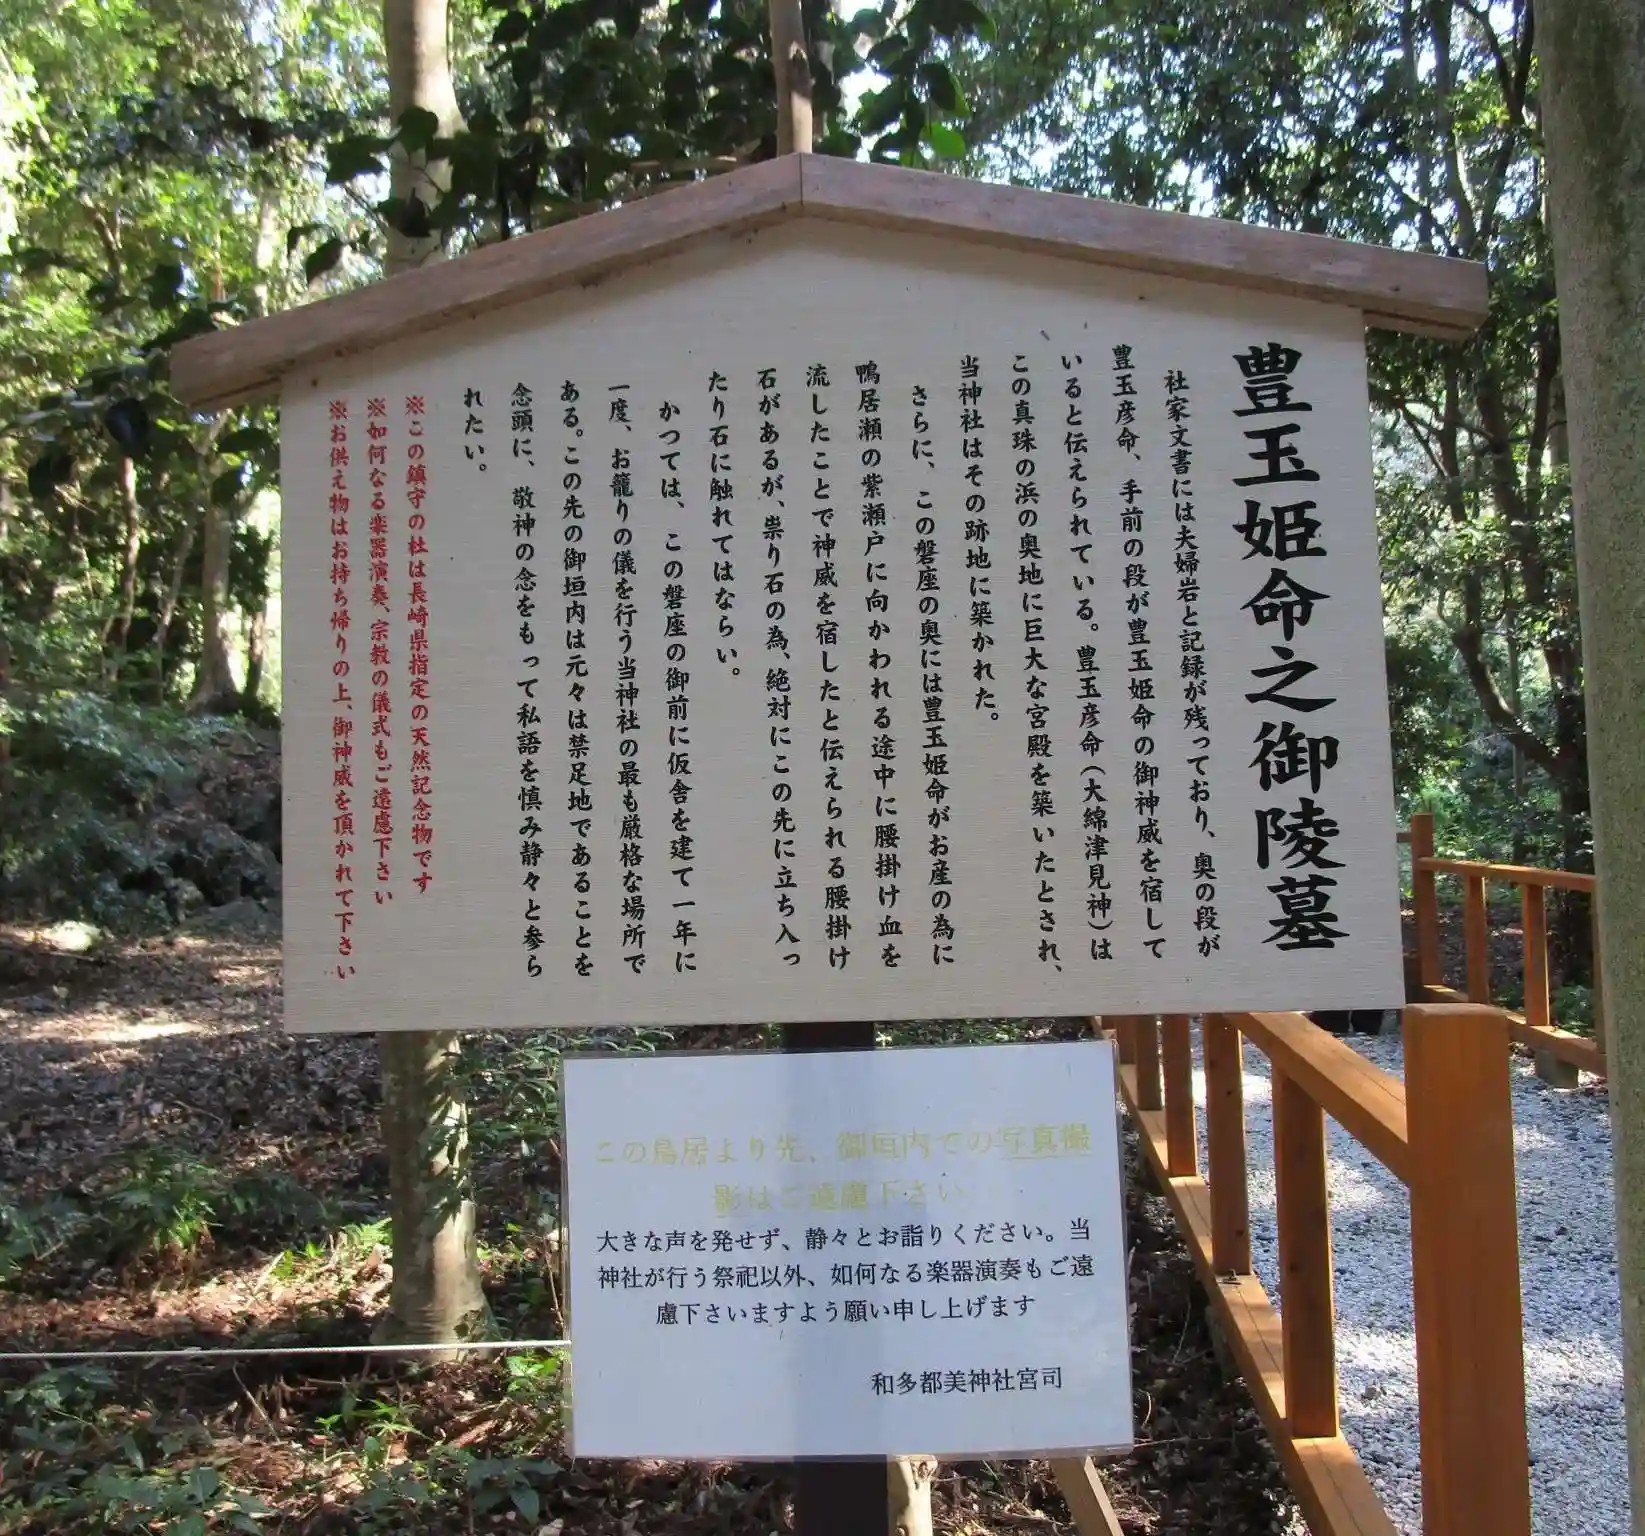 豊玉姫命之御陵墓
社家文書には夫婦岩と記録が残っており、奥の段が
豊玉彦命、手前の段が豊玉姫命の御神威を宿して
いると伝えられている。豊玉彦命(大綿津見神)は
この真珠の浜の奥地に巨大な宮殿を築いたとされ、
当神社はその跡地に築かれた。
さらに、この磐座の奥には豊玉姫命がお産の為に
鴨居瀬の紫瀬戸に向かわれる途中に腰掛け血を
流したことで神威を宿したと伝えられる腰掛け
石があるが、祟り石の為、絶対にこの先に立ち入っ
たり石に触れてはならい。
かつては、この磐座の御前に仮舎を建て一年に
一度、お籠りの儀を行う当神社の最も厳格な場所で
ある。この先の御垣内は元々は禁足地であることを
念頭に、敬神の念をもって私語を慎み静々と参ら
れたい。
※この鎮守の杜は長崎県指定の天然記念物です
※如何なる楽器演奏、宗教の儀式もご遠慮下さい
※お供え物はお持ち帰りの上、御神威を頂かれて下さい
この鳥居より先、御垣内での写真撮
影はご遠慮下さい
大きな声を発せず、静々とお詣りください。当
神社が行う祭祀以外、如何なる楽器演奏もご遠
慮下さいますよう願い申し上げます
和多都美神社宮司